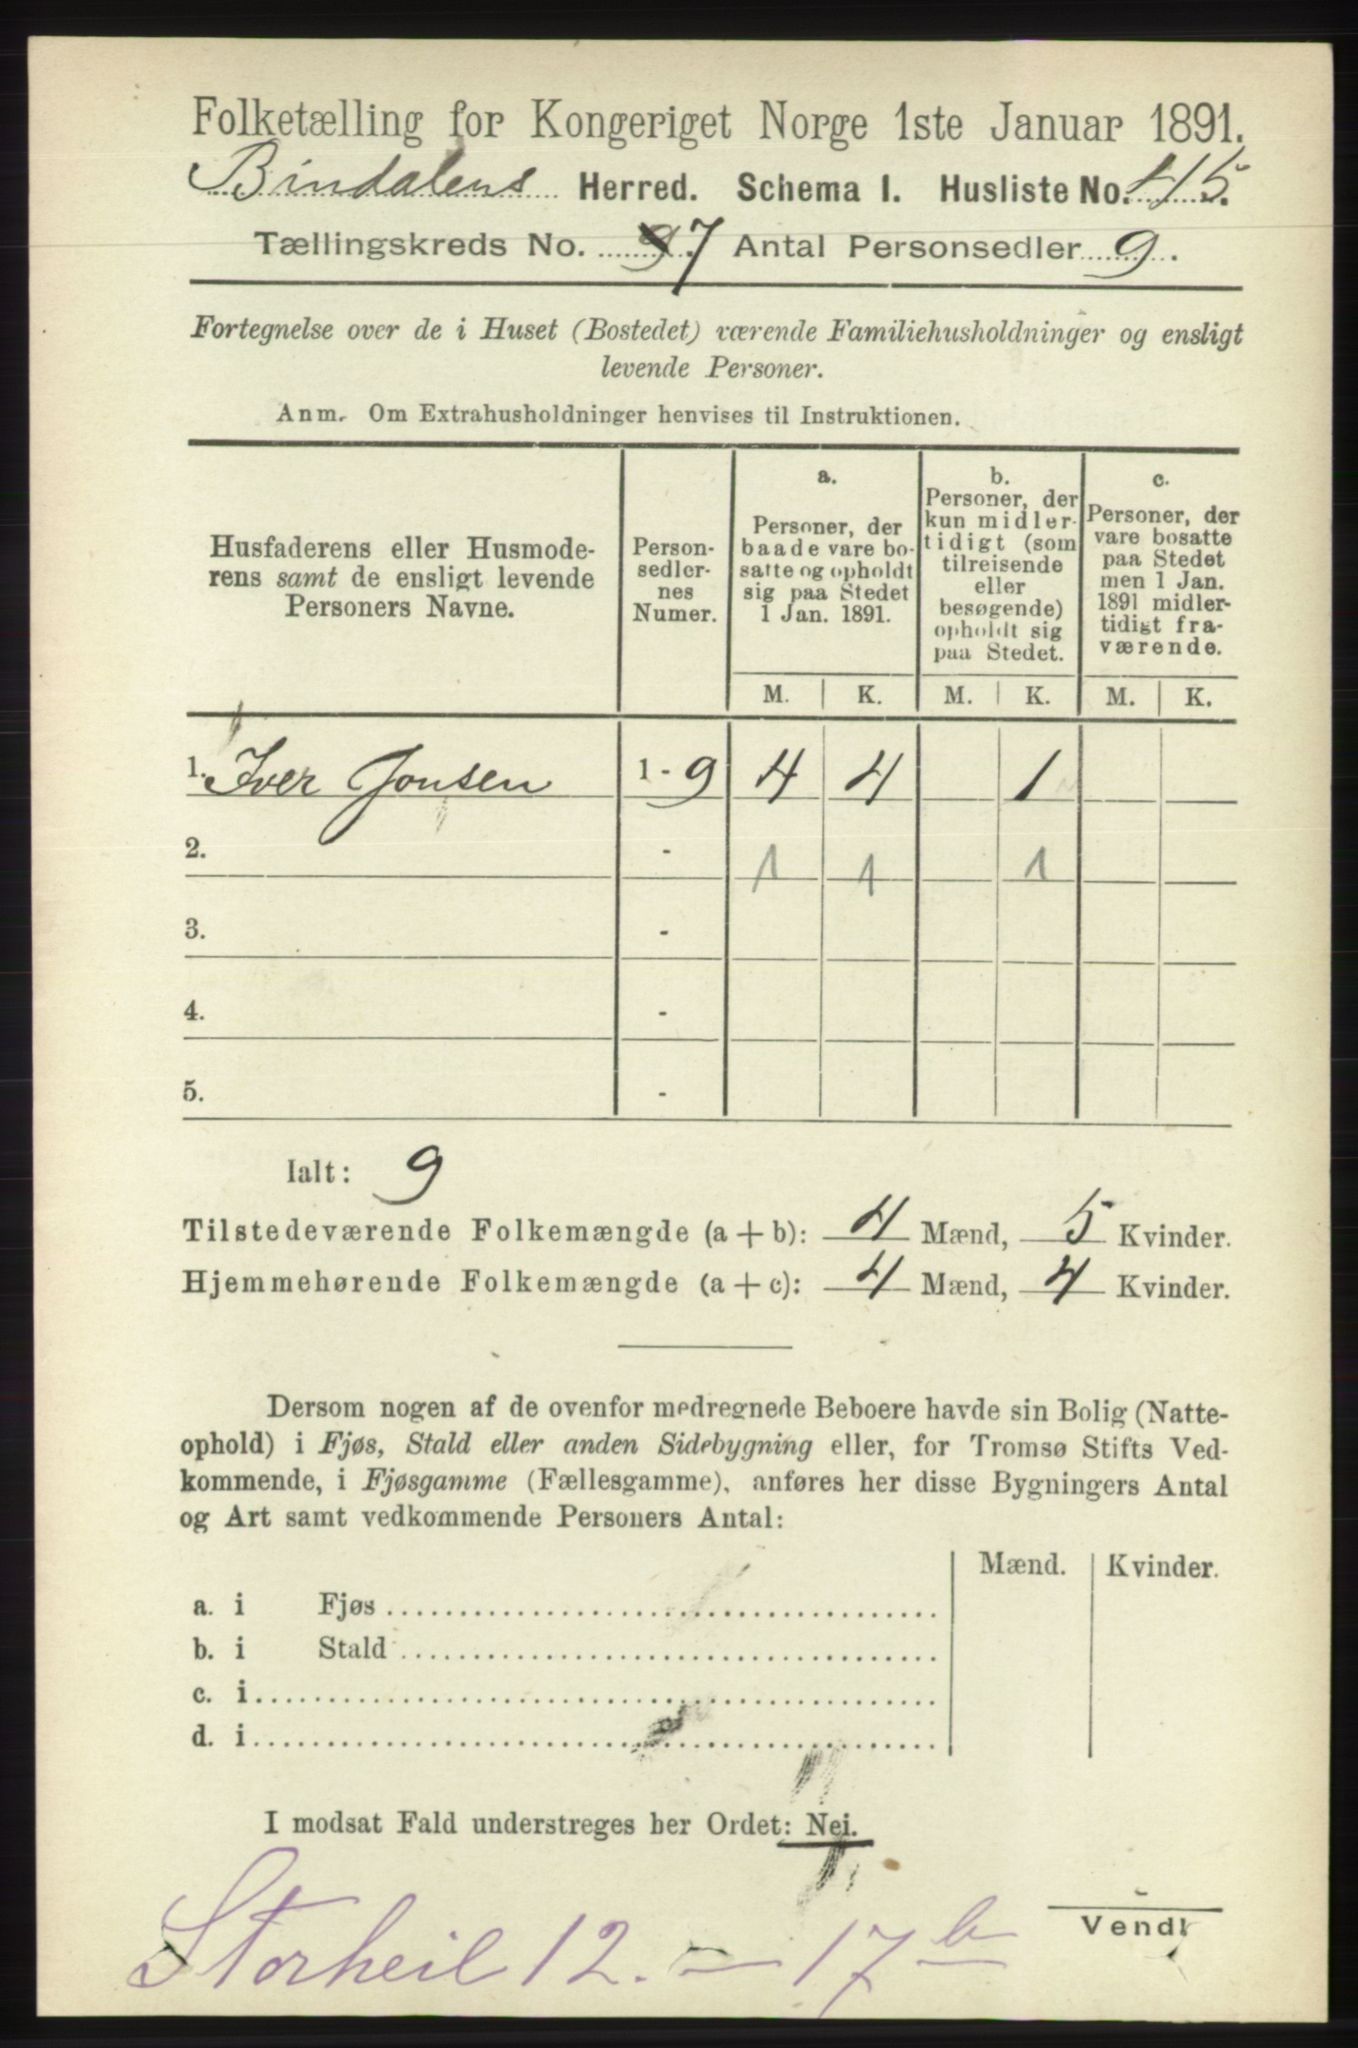 Folketælling for Kongeriget Norge 1ste Januar 1891.
Bindalens Herred. Schema I. Husliste No. 45.
Tællingskreds No. 9 7 Antal Personsedler 9.
Fortegnelse over de i Huset (Bostedet) værende Familiehusholdninger og ensligt
levende Personer.
Anm. Om Extrahusholdninger henvises til Instruktionen.
Husfaderens eller Husmode-
rens samt de ensligt levende
Personers Navne.
Person-
sedler-
nes
Numer.
a.
Personer, der
baade vare bo-
satte og opholdt
sig paa Stedet
1 Jan. 1891.
b.
Personer, der
kun midler-
tidigt (som
tilreisende
eller
besøgende)
opholdt sig
paa Stedet.
c.
Personer, der
vare bosatte
paa Stedet
men 1 Jan.
1891 midler-
tidigt fra-
værende.
M. K. M. K. M. K.
1. Iver Jonsen 1 - 9 4 4 1
2. - 1 1 1
3. -
4. -
5. -
Ialt: 9
Tilstedeværende Folkemængde (a + b): 4 Mænd, 5 Kvinder.
Hjemmehørende Folkemængde (a + c): 4 Mænd, 4 Kvinder.
Dersom nogen af de ovenfor medregnede Beboere havde sin Bolig (Natte-
ophold) i Fjøs, Stald eller anden Sidebygning eller, for Tromsø Stifts Ved-
kommende, i Fjøsgamme (Fællesgamme), anføres her disse Bygningers Antal
og Art samt vedkommende Personers Antal:
Mænd. Kvinder.
a. i Fjøs
b. i Stald
c. i
d. i
I modsat Fald understreges her Ordet: Nei.
Vend!
Storheil 12. = 17 b